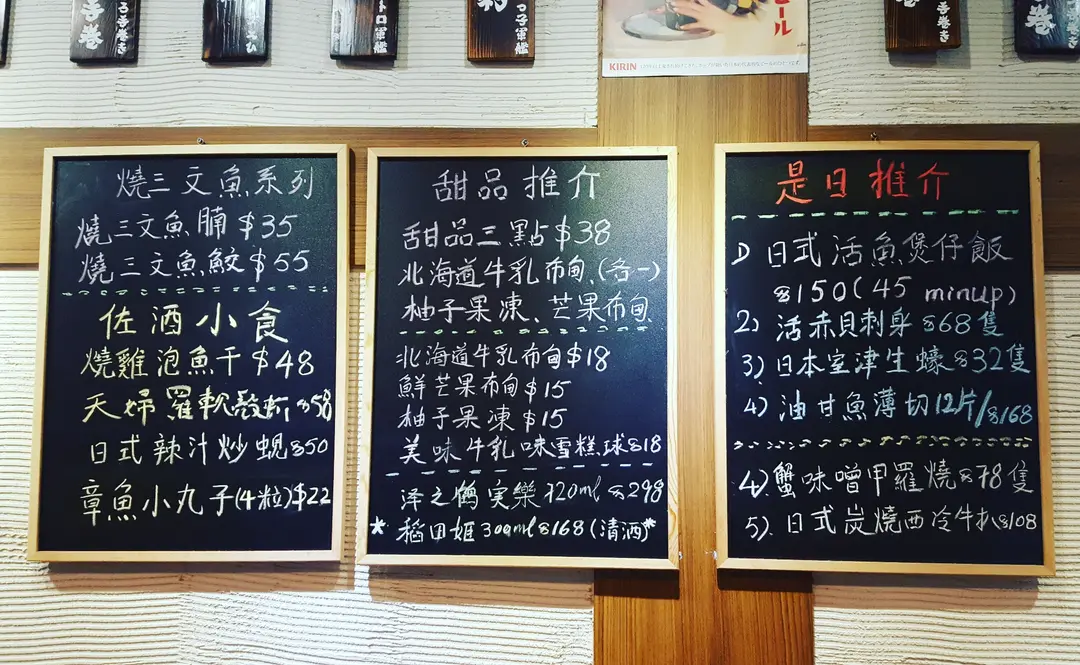 手巻
手巻き
トロ軍艦
っ子軍艦
ビール
KIRIN
子巻き
巻
燒三文魚系列
燒三文魚腩 $35
燒三文魚鮫 $55
佐酒小食
燒雞泡魚干 $48
天婦羅軟殼蟹 $58
日式辣汁炒蜆 $50
章魚小丸子(4粒) $22
甜品推介
甜品三點 $38
北海道牛乳布甸(各一)
柚子果凍、芒果布甸
北海道牛乳布甸 $18
鮮芒果布甸 $15
柚子果凍 $15
美味牛乳味雪糕球 $18
泽之鶴実樂 720ml $298
*稻田姫 300ml $168 (清酒)*
是日推介
1) 日式活魚煲仔飯
$150 (45 minup)
2) 活赤貝刺身 $68隻
3) 日本室津生蠔 $32隻
4) 油甘魚薄切12片/$168
4). 蟹味噌甲羅燒 $78隻
5). 日式炭燒西冷牛扒 $108